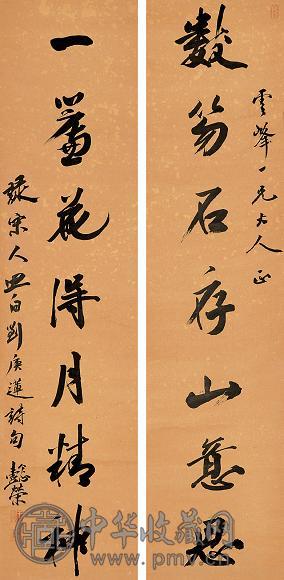 雲峰一兄大人正
數笏石存山意思
一簾花得月精神
宋人 白劉庚蓮詩句 懿榮
中华收藏网
www.pmv.cn